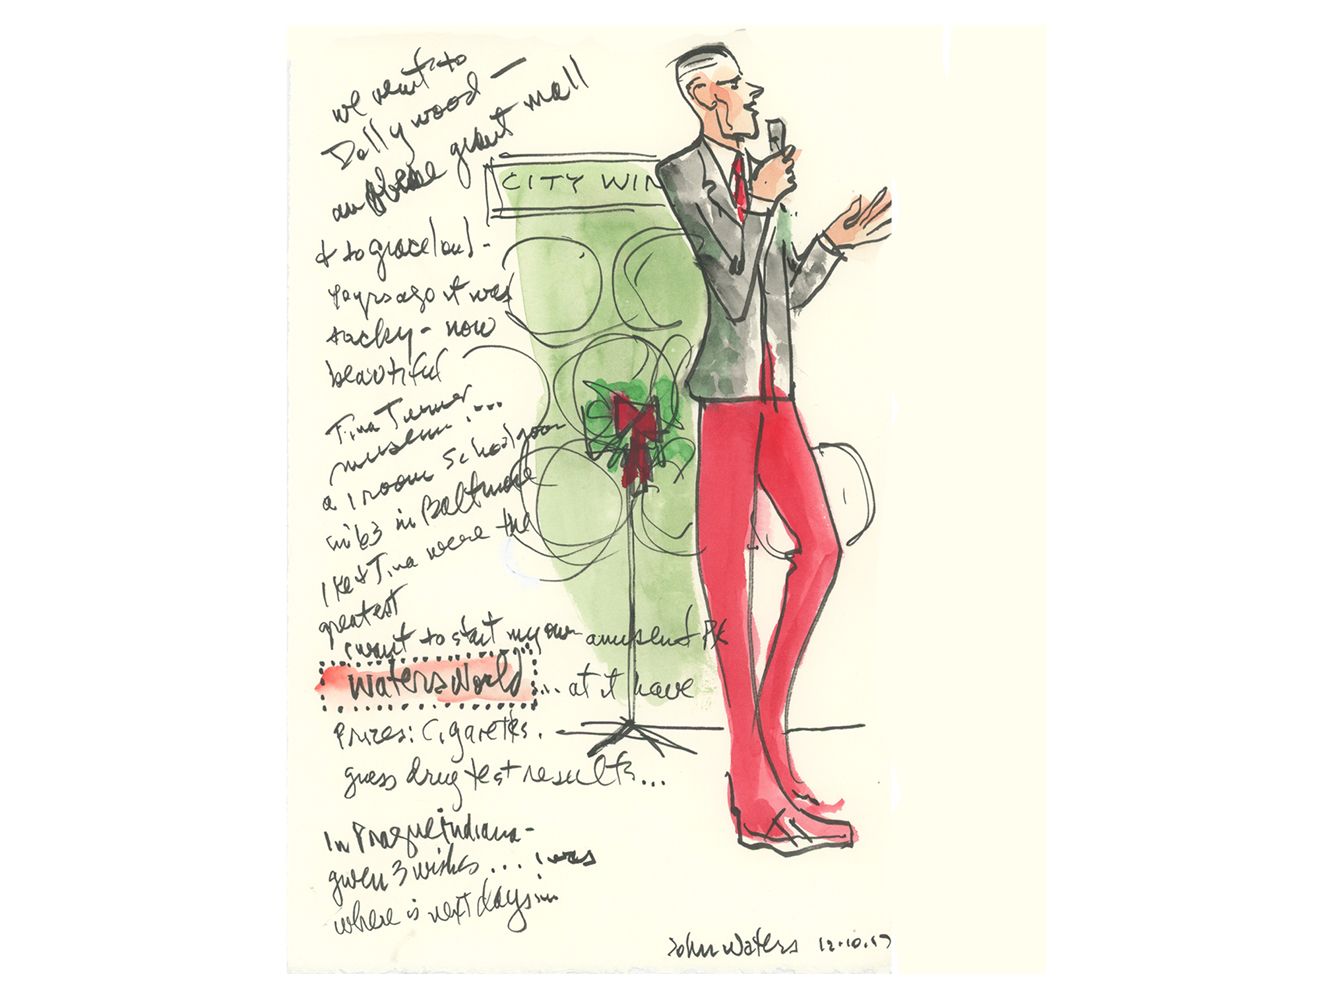 we went to
Dollywood —
giant mall
CITY WIN
& to graceland -
yrs ago it was
tacky - now
beautiful
Tina Turner
museum ...
a 1 room School
in Baltimore
Ike & Tina were the
greatest
I want to start my own amusement Pk
WatersWorld ... at it have
Prizes: Cigarettes.
guess drug test results...
In Prague Indiana -
given 3 wishes ... I was
where is next days inn
John Waters 12.10.17